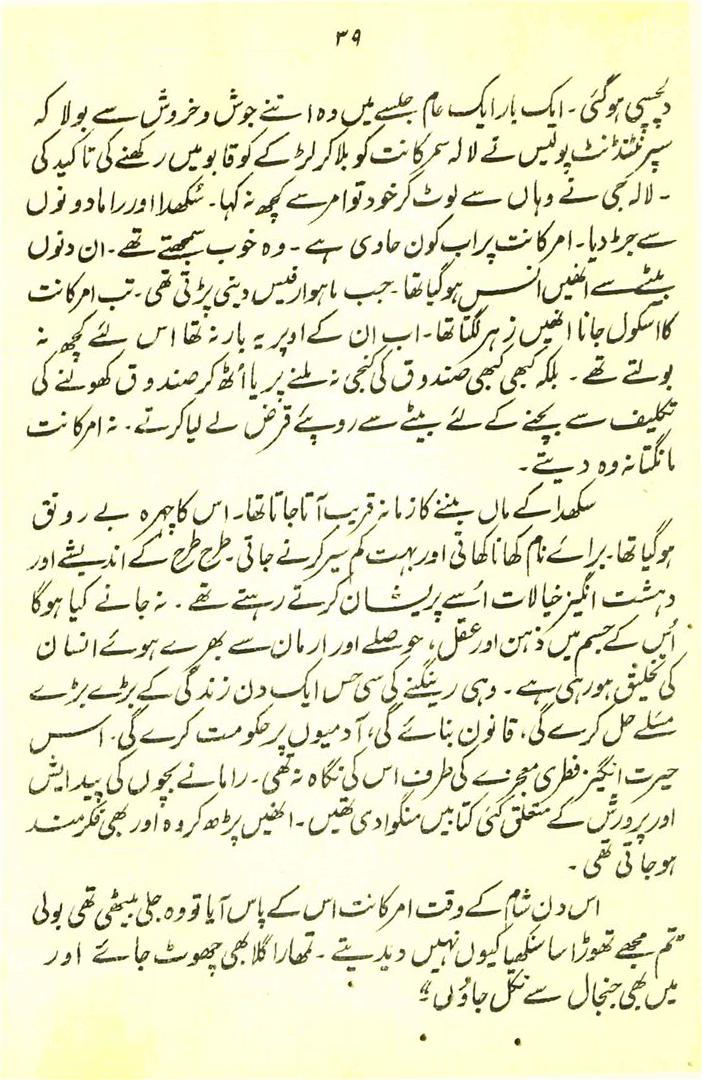 ۳۹
دلچسپی ہوگئی۔ ایک بار ایک عام جلسے میں وہ اتنے جوش و خروش سے بولا کہ
سپرنٹنڈنٹ پولیس نے لالہ سمرکانت کو بلا کر لڑکے کو قابو میں رکھنے کی تاکید کی
۔ لالہ جی نے وہاں سے لوٹ کر خود تو امر سے کچھ نہ کہا۔ سُکھدا اور راما دونوں
سے جڑ دیا۔ امرکانت پر اب کون حاوی ہے ۔ وہ خوب سمجھتے تھے۔ ان دنوں
بیٹے سے انھیں انس ہوگیا تھا۔ جب ماہوار فیس دینی پڑتی تھی۔ تب امرکانت
کا اسکول جانا انھیں زہر لگتا تھا۔ اب ان کے اوپر یہ بار نہ تھا اس لئے کچھ نہ
بولتے تھے۔ بلکہ کبھی کبھی صندوق کی کنجی نہ ملنے پر یا اُٹھ کر صندوق کھولنے کی
تکلیف سے بچنے کے لئے بیٹے سے روپئے قرض لے لیا کرتے۔ نہ امرکانت
مانگتا نہ وہ دیتے۔
سکھدا کے ماں بننے کا زمانہ قریب آتا جاتا تھا۔ اس کا چہرہ بے رونق
ہوگیا تھا۔ برائے نام کھانا کھاتی اور بہت کم سیر کرنے جاتی۔ طرح طرح کے اندیشے اور
دہشت انگیز خیالات اُسے پریشان کرتے رہتے تھے۔ نہ جانے کیا ہوگا
اُس کے جسم میں ذہن اور عقل، حوصلے اور ارمان سے بھرے ہوئے انسان
کی تخلیق ہورہی ہے۔ وہی رینگنے کی سی حس ایک دن زندگی کے بڑے بڑے
مسئلے حل کرے گی، قانون بنائے گی، آدمیوں پر حکومت کرے گی۔ اس
حیرت انگیز فطری معجزے کی طرف اس کی نگاہ نہ تھی۔ راما نے بچوں کی پیدایش
اور پرورش کے متعلق کئی کتابیں منگوا دی تھیں۔ انھیں پڑھ کر وہ اور بھی فکرمند
ہو جاتی تھی۔
اس دن شام کے وقت امرکانت اس کے پاس آیا تو وہ جلی بیٹھی تھی بولی
"تم مجھے تھوڑا سا سنکھیا کیوں نہیں دیدیتے۔ تمھارا گلا بھی چھوٹ جائے اور
میں بھی جنجال سے نکل جاؤں"